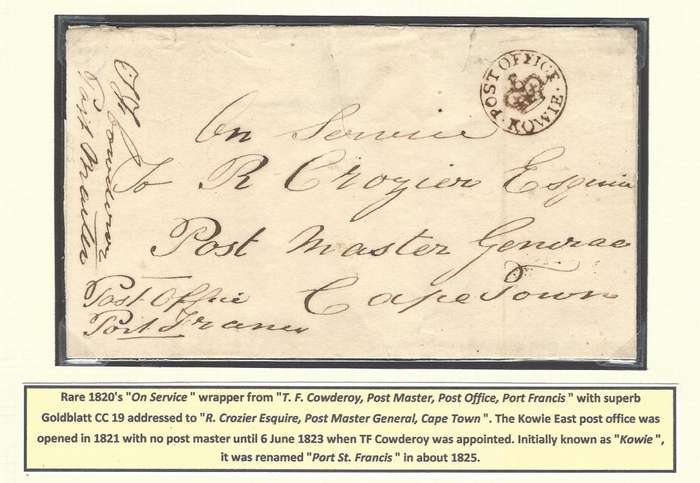 POST OFFICE
KOWIE
On Service
To R Crozier Esquire
Post Master General
Cape Town
Post Office
Port Francis
Cowderoy
Post Master
Rare 1820's "On Service" wrapper from "T. F. Cowderoy, Post Master, Post Office, Port Francis" with superb
Goldblatt CC 19 addressed to "R. Crozier Esquire, Post Master General, Cape Town". The Kowie East post office was
opened in 1821 with no post master until 6 June 1823 when TF Cowderoy was appointed. Initially known as "Kowie",
it was renamed "Port St. Francis" in about 1825.